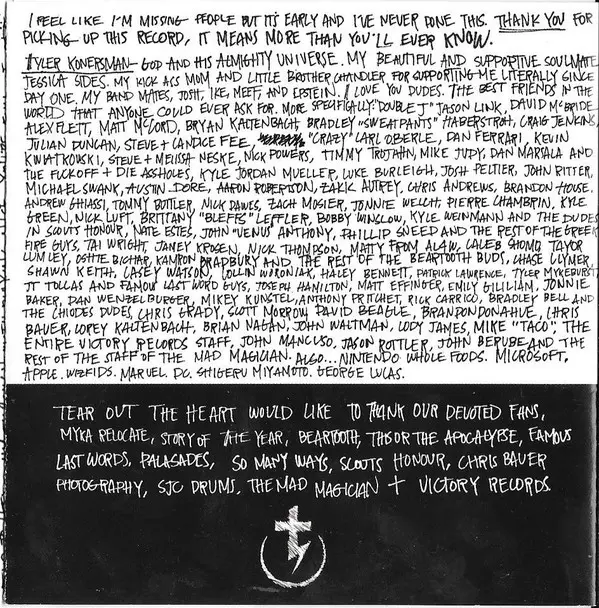 I FEEL LIKE I'M MISSING PEOPLE BUT IT'S EARLY AND I'VE NEVER DONE THIS. THANK YOU FOR
PICKING UP THIS RECORD, IT MEANS MORE THAN YOU'LL EVER KNOW.
TYLER KONERSMAN - GOD AND HIS ALMIGHTY UNIVERSE. MY BEAUTIFUL AND SUPPORTIVE SOULMATE
JESSICA SIDES. MY KICK ASS MOM AND LITTLE BROTHER CHANDLER FOR SUPPORTING ME LITERALLY SINCE
DAY ONE. MY BAND MATES, JOSH, IKE, MEFF, AND EPSTEIN. I LOVE YOU DUDES. THE BEST FRIENDS IN THE
WORLD THAT ANYONE COULD EVER ASK FOR. MORE SPECIFICALLY: "DOUBLE J" JASON LINK, DAVID McBRIDE,
ALEX FLETT, MATT McCORD, BRYAN KALTENBACH, BRADLEY "SWEATPANTS" HABERSTROH, CRAIG JENKINS,
JULIAN DUNCAN, STEVE + CANDICE FEE, "CRAZY" CARL OBERLE, DAN FERRARI, KEVIN
KWIATKOWSKI, STEVE + MELISSA NESKE, NICK POWERS, TIMMY TRUJAHN, MIKE JUDY, DAN MARSALA AND
THE FUCKOFF + DIE ASSHOLES, KYLE JORDAN MUELLER, LUKE BURLEIGH, JOSH PELTIER, JOHN RITTER,
MICHAEL SWANK, AUSTIN DORE, AARON ROBERTSON, ZAKK AUTREY, CHRIS ANDREWS, BRANDON HOUSE.
ANDREW GHIASSI, TOMMY BUTTLER, NICK DAWES, ZACH MOSIER, JONNIE WELCH, PIERRE CHAMBRIN, KYLE
GREEN, NICK LUFT, BRITTANY "BLEFFS" LEFFLER, BOBBY WINSLOW, KYLE WEINMANN AND THE DUDES
IN SCOUTS HONOUR, NATE ESTES, JOHN "VENUS" ANTHONY, PHILLIP SNEED AND THE REST OF THE GREEK
FIRE GUYS, TAI WRIGHT, JANEY KROSEN, NICK THOMPSON, MATTY FROM ALAW, CALEB SHOMO, TAYLOR
LUMLEY, OSHIE BICHAR, KAMRON BRADBURY AND THE REST OF THE BEARTOOTH BUDS, CHASE CLYMER,
SHAWN KEITH, CASEY WATSON, COLLIN WORONIAK, HALEY BENNETT, PATRICK LAWRENCE, TYLER MYKEBURST,
JT TOLLAS AND FAMOUS LAST WORD GUYS, JOSEPH HAMILTON, MATT EFFINGER, EMILY GILLIAM, JONNIE
BAKER, DAN WENZELBURGER, MIKEY KUNSTEL, ANTHONY PRITCHET, RICK CARRICO, BRADLEY BELL AND
THE CHIODOS DUDES, CHRIS GRADY, SCOTT MORROW, DAVID BEAGLE, BRANDON DONAHUE, CHRIS
BAUER, COREY KALTENBACH, BRIAN NAGAN, JOHN WALTMAN, CODY JAMES, MIKE "TACO", THE
ENTIRE VICTORY RECORDS STAFF, JOHN MANCUSO, JASON ROTTLER, JOHN BERUBE AND THE
REST OF THE STAFF OF THE MAD MAGICIAN. ALSO... NINTENDO. WHOLE FOODS. MICROSOFT.
APPLE. WIZKIDS. MARVEL. DC. SHIGERU MIYAMOTO. GEORGE LUCAS.
TEAR OUT THE HEART WOULD LIKE TO THANK OUR DEVOTED FANS,
MYKA RELOCATE, STORY OF THE YEAR, BEARTOOTH, THIS OR THE APOCALYPSE, FAMOUS
LAST WORDS, PALASADES, SO MANY WAYS, SCOUTS HONOUR, CHRIS BAUER
PHOTOGRAPHY, SJC DRUMS, THE MAD MAGICIAN + VICTORY RECORDS